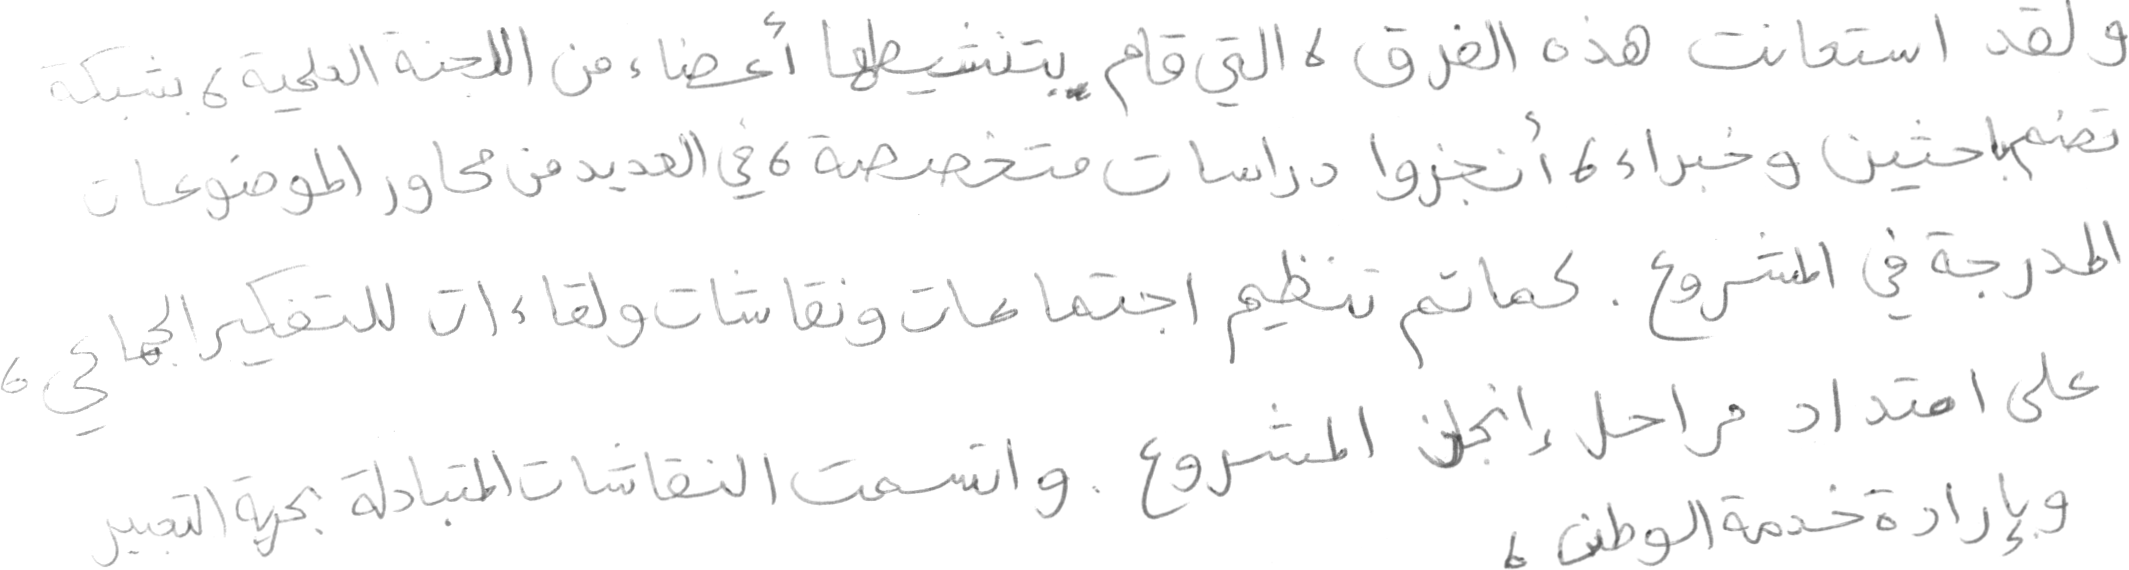 ولقد استعانت هذه الفرق، التي قام بتنشيطها أعضاء من اللجنة العلمية، بشبكة
تضم باحثين وخبراء، أنجزوا دراسات متخصصة، في العديد من محاور الموضوعات
المدرجة في المشروع. كما تم تنظيم اجتماعات ونقاشات ولقاءات للتفكير الجماعي،
على امتداد مراحل إنجاز المشروع. واتسمت النقاشات المتبادلة بحرية التعبير
وبإرادة خدمة الوطن،